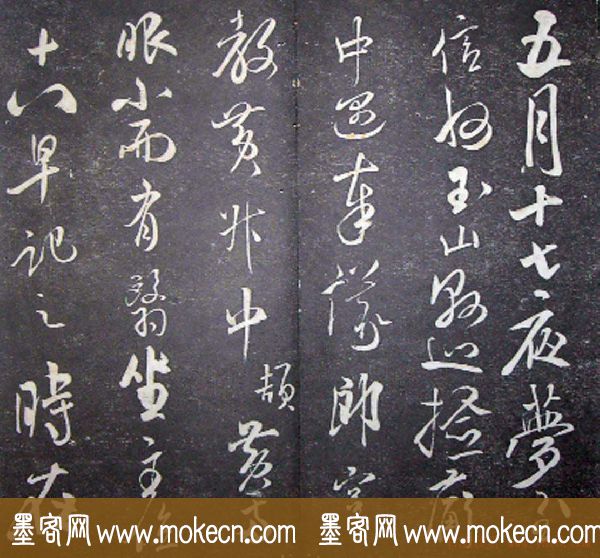 五月十七夜夢
信州玉山縣巡撿
中遇奉議郎宮
教黄中頡黄
眼小而有翳坐主
十八早記之時
墨客网 www.mokecn.com 墨客网 www.mokecn.com